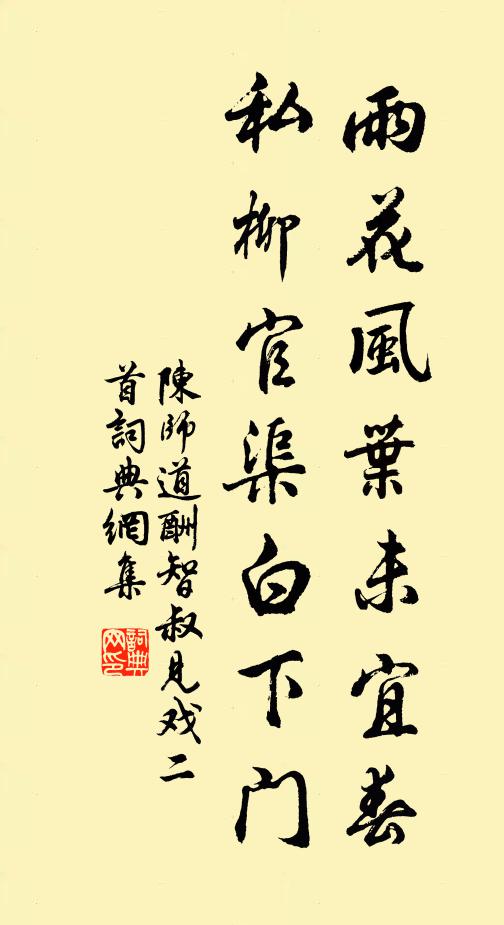 雨花風葉未宜春
私柳官渠白下門
陳師道酬智叔見戏二
首詞典網集
詞典
网印